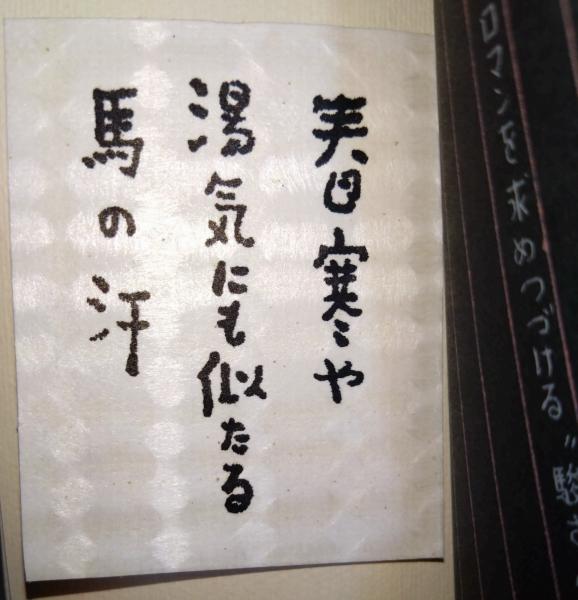 ロマンを求めつづける〃駿さ
春寒や
湯気にも似たる
馬の汗